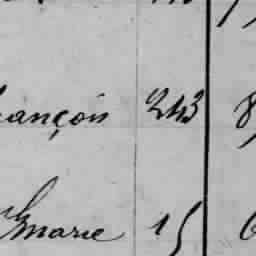 rançois 243 8
Marie 15 6